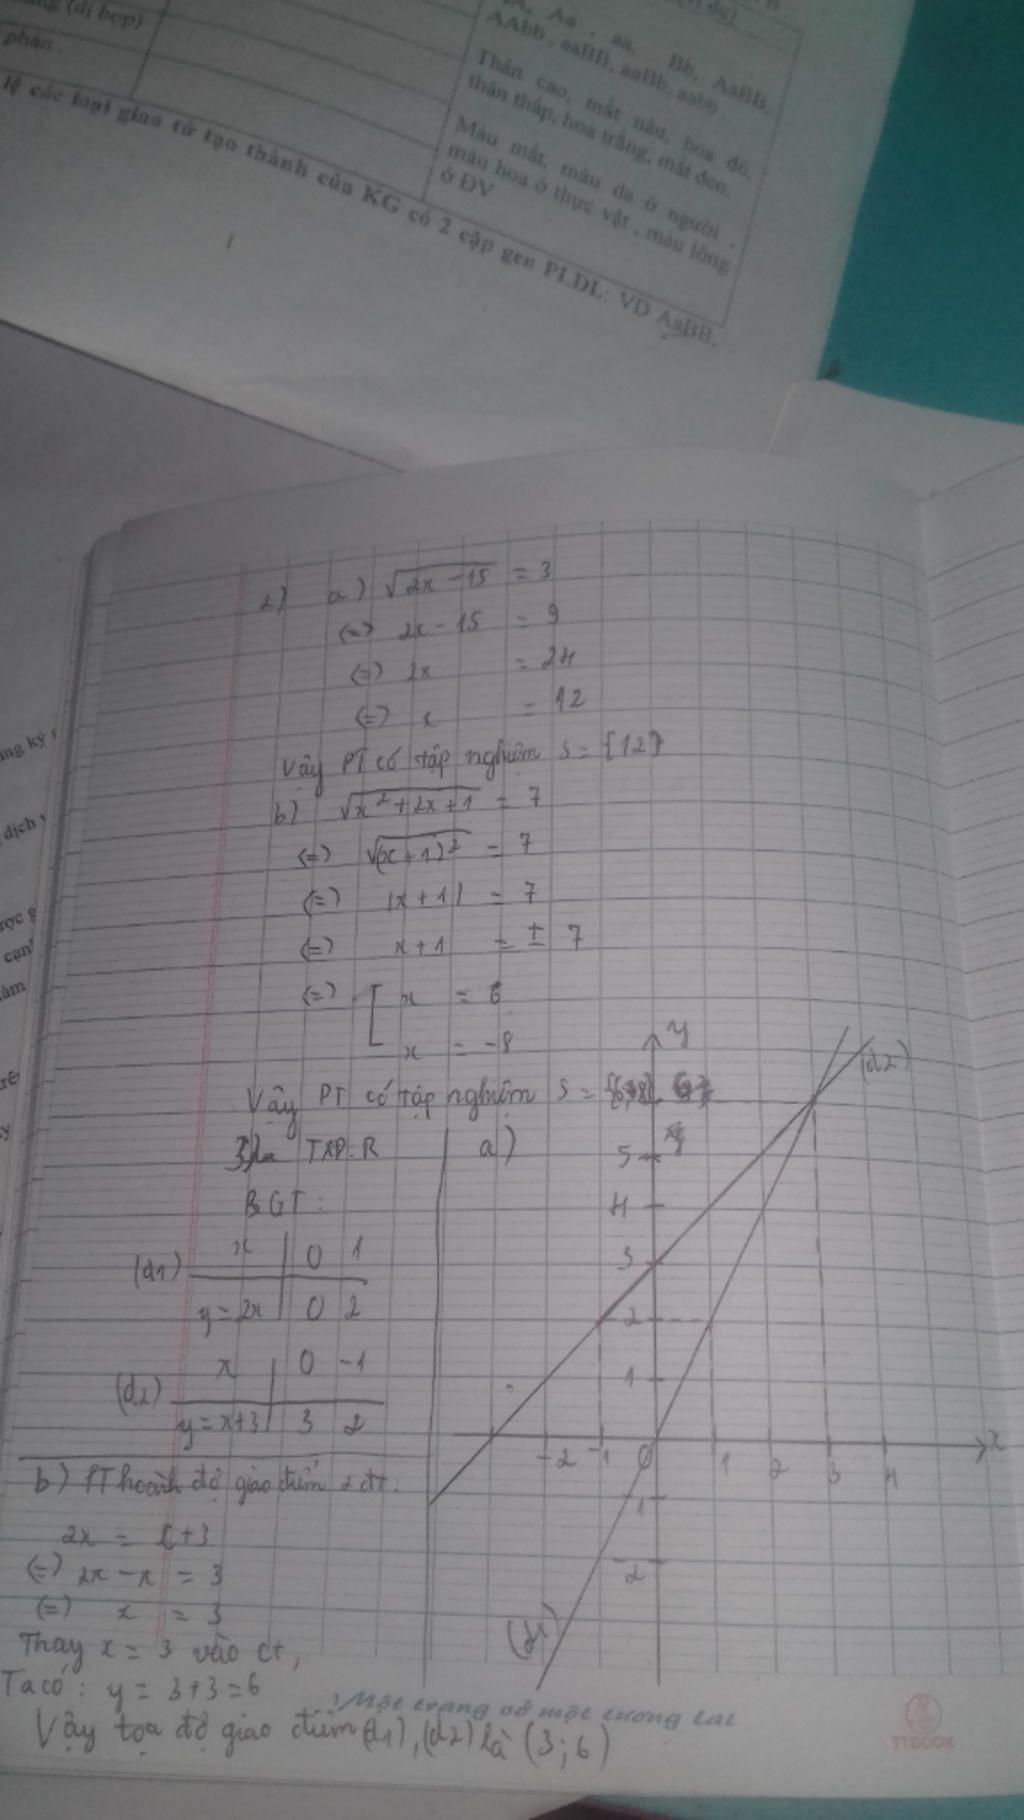 (dị hợp)
phân.
Aa, aa, Bb, AaBB,
AAbb, aaBB, aaBb, aabb.
Thân cao, mắt nâu, hoa đỏ,
thân thấp, hoa trắng, mắt đen.
Màu mắt, màu da ở người,
màu hoa ở thực vật, màu lông
ở ĐV
lệ các loại giao tử tạo thành của KG có 2 cặp gen PLĐL: VD AaBB.
2) a) √2x-15 = 3
(=) 2x-15 = 9
(=) 2x = 24
(=) x = 12
Vậy PT có tập nghiệm S = {12}
b) √x²+2x+1 = 7
(=) √(x+1)² = 7
(=) |x+1| = 7
(=) x+1 = ± 7
(=) [ x = 6
x = -8
Vậy PT có tập nghiệm S =
TXĐ: R
BGT:
(d1) x | 0 1
y=2x | 0 2
(d2) x | 0 -1
y=x+3 | 3 2
a)
y
(d2)
5
4
3
2
1
-2 -1 0 1 2 3 4 x
-1
-2
(d1)
b) PT hoành độ giao điểm 2 đt:
2x = x+3
(=) 2x-x = 3
(=) x = 3
Thay x = 3 vào đt,
Ta có: y = 3+3=6
Vậy tọa độ giao điểm (d1), (d2) là (3;6)
Một trang vở một tương lai
TTBOOK
dịch